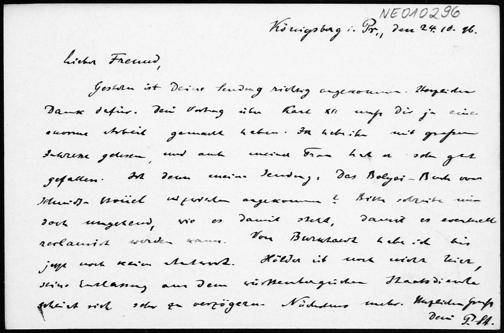 NE010296
Königsberg i. Pr., den 24.10.96.
Lieber Freund,
Gestern ist Deine Sendung richtig angekommen. Herzlichen
Dank dafür. Dein Vortrag über Karl XII muß Dir ja eine
enorme Arbeit gemacht haben. Ich habe ihn mit großem
Interesse gelesen, und auch meine Frau hat er sehr gut
gefallen. Ist denn meine Sendung, das Bolyai-Buch von
Schmidt-Stäckel inzwischen angekommen? Bitte schreibe mir
doch umgehend, wie es damit steht, damit es eventuell
reclamirt werden kann. Von Burkhardt habe ich bis
jetzt noch keine Antwort. Hölder ist noch nicht hier,
seine Entlassung aus dem württembergischen Staatsdienste
scheint sich sehr zu verzögern. Nächstens mehr. Herzlichen Gruß
Dein P. St.